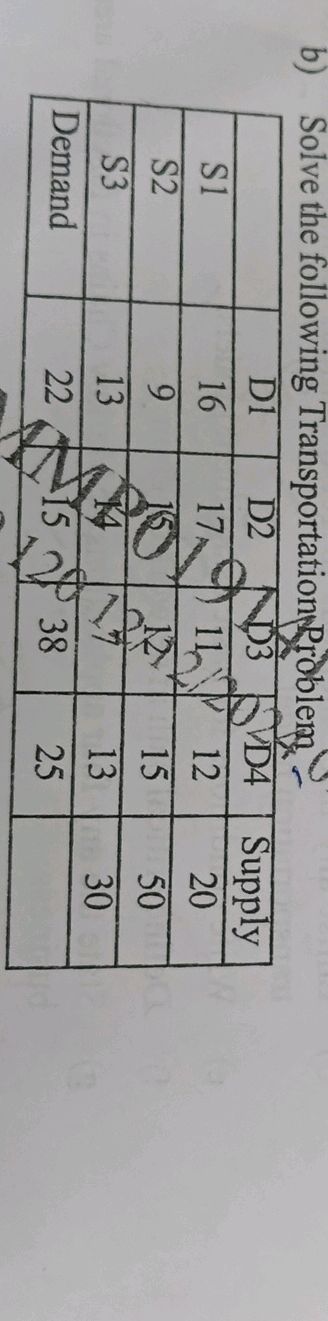 b) Solve the following Transportation Problem
D1 D2 D3 D4 Supply
S1 16 17 11 12 20
S2 9 15 12 15 50
S3 13 14 17 13 30
Demand 22 15 38 25